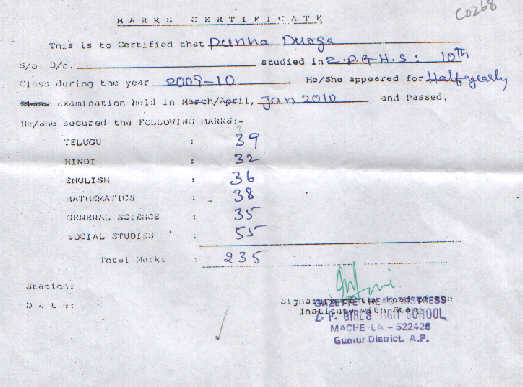 C0268
MARKS CERTIFICATE
This is to Certified that Dunna Durga
S/o D/o. studied in Z.P.G.H.S: 10th
Class during the year 2009-10 He/She appeared for Half yearly
examination held in March/April, Jan 2010 and Passed.
He/She secured the FOLLOWING MARKS:-
TELUGU : 39
HINDI : 32
ENGLISH : 36
MATHEMATICS : 38
GENERAL SCIENCE : 35
SOCIAL STUDIES : 55
Total Marks : 235
Station:
Date:
Signature of the
Z.P. GIRLS HIGH SCHOOL
MACHERLA - 522426
Guntur District, A.P.